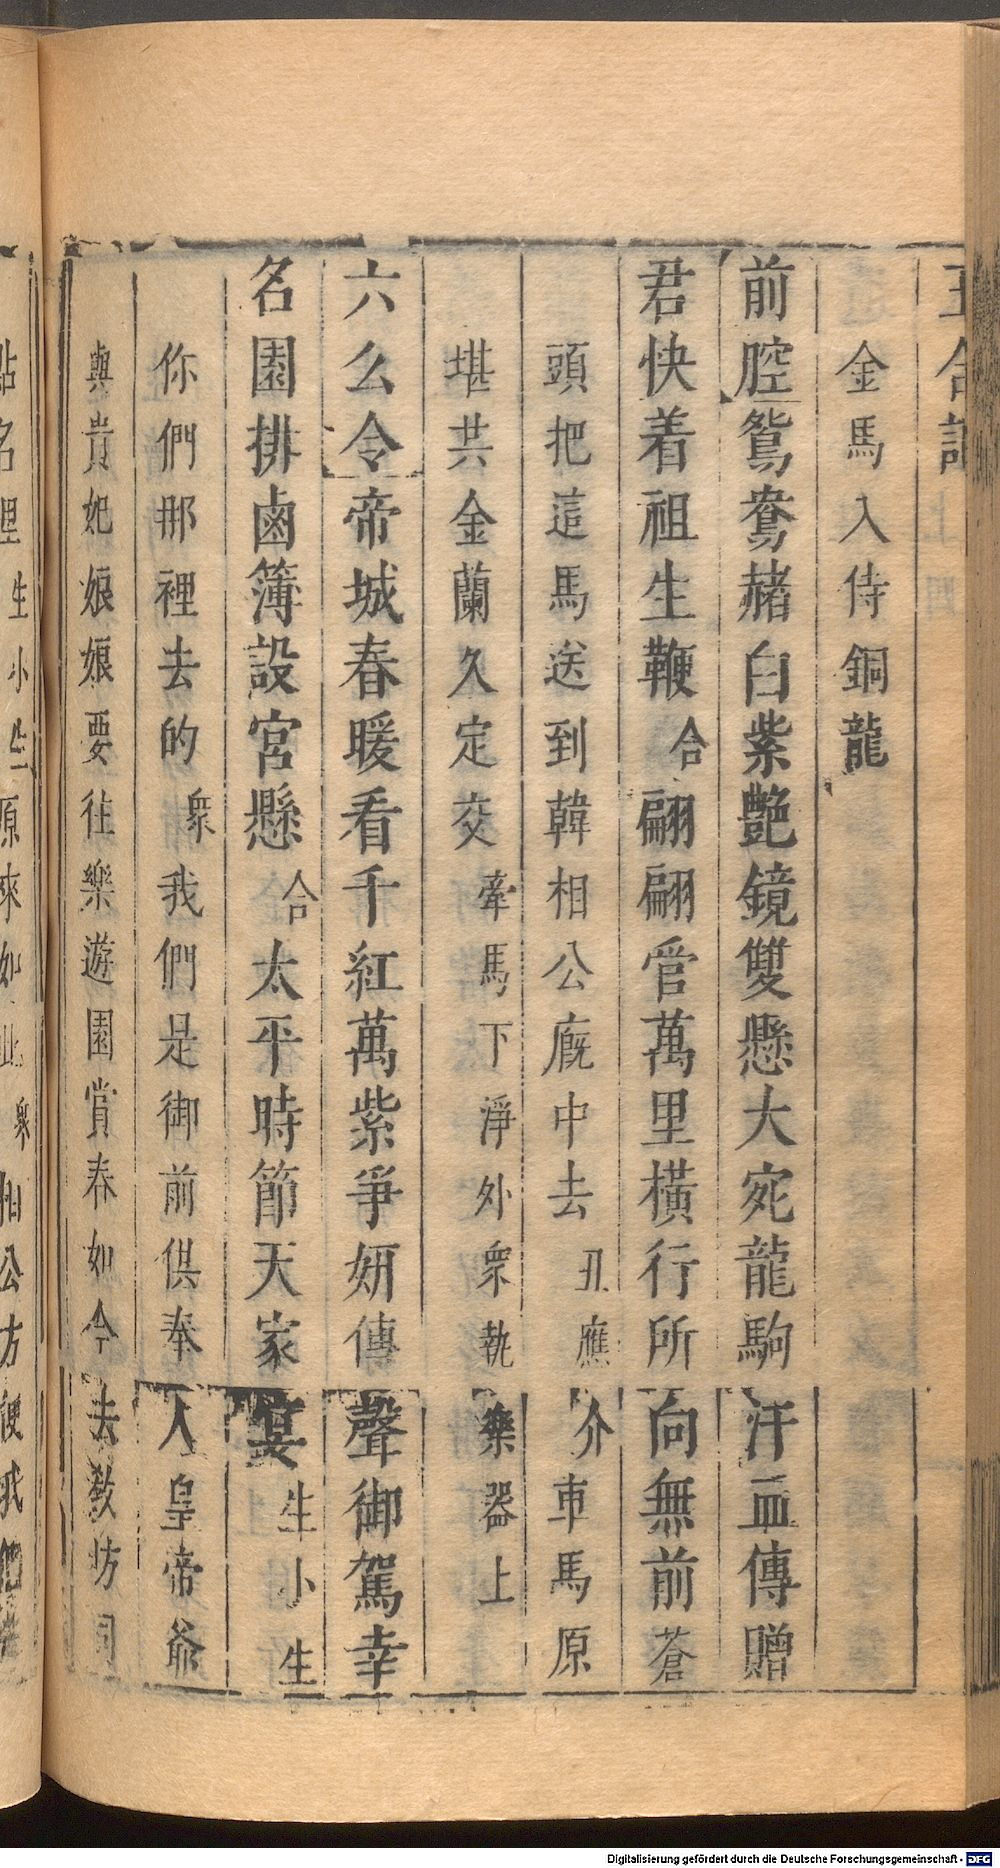 玉合記 上 四
金馬入侍銅龍
前腔鴛鴦赭白紫艶鏡雙懸大宛龍駒汗血傳贈
君快着祖生鞭合翩翩管萬里橫行所向無前蒼
頭把這馬送到韓相公廐中去丑應介車馬原
堪共金蘭久定交牽馬下淨外衆執樂器上
六么令帝城春暖看千紅萬紫爭妍傳聲御駕幸
名園排鹵簿設宮懸合太平時節天家宴生小生
你們那裡去的衆我們是御前供奉人皇帝爺
與貴妃娘娘要往樂遊園賞春如今去教坊司
點名哩生小生原來如此衆相公方便我們
Digitalisierung gefördert durch die Deutsche Forschungsgemeinschaft - DFG